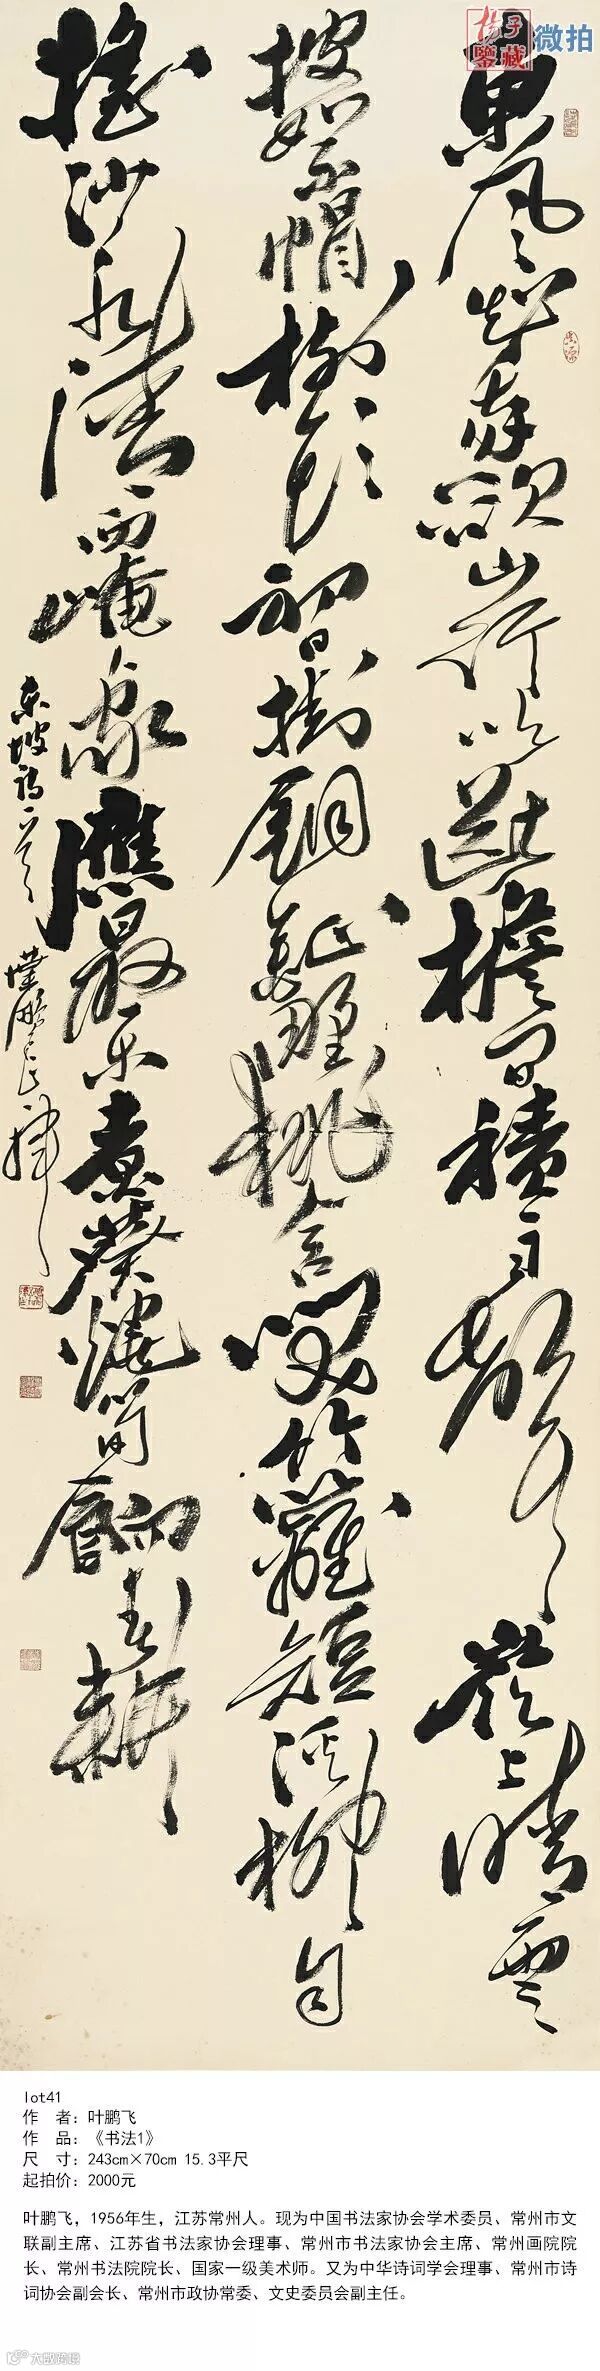 扬子
鉴藏
微拍
东风知我欲山行吹断檐间积雨声岭上晴云
披絮帽树头初日挂铜钲野桃含笑竹篱短溪柳自
摇沙水清西崦人家应最乐煮葵烧笋饷春耕
东坡诗一首
lot41
作 者：叶鹏飞
作 品：《书法1》
尺 寸：243cm×70cm 15.3平尺
起拍价：2000元
叶鹏飞，1956年生，江苏常州人。现为中国书法家协会学术委员、常州市文
联副主席、江苏省书法家协会理事、常州市书法家协会主席、常州画院院
长、常州书法院院长、国家一级美术师。又为中华诗词学会理事、常州市诗
词协会副会长、常州市政协常委、文史委员会副主任。